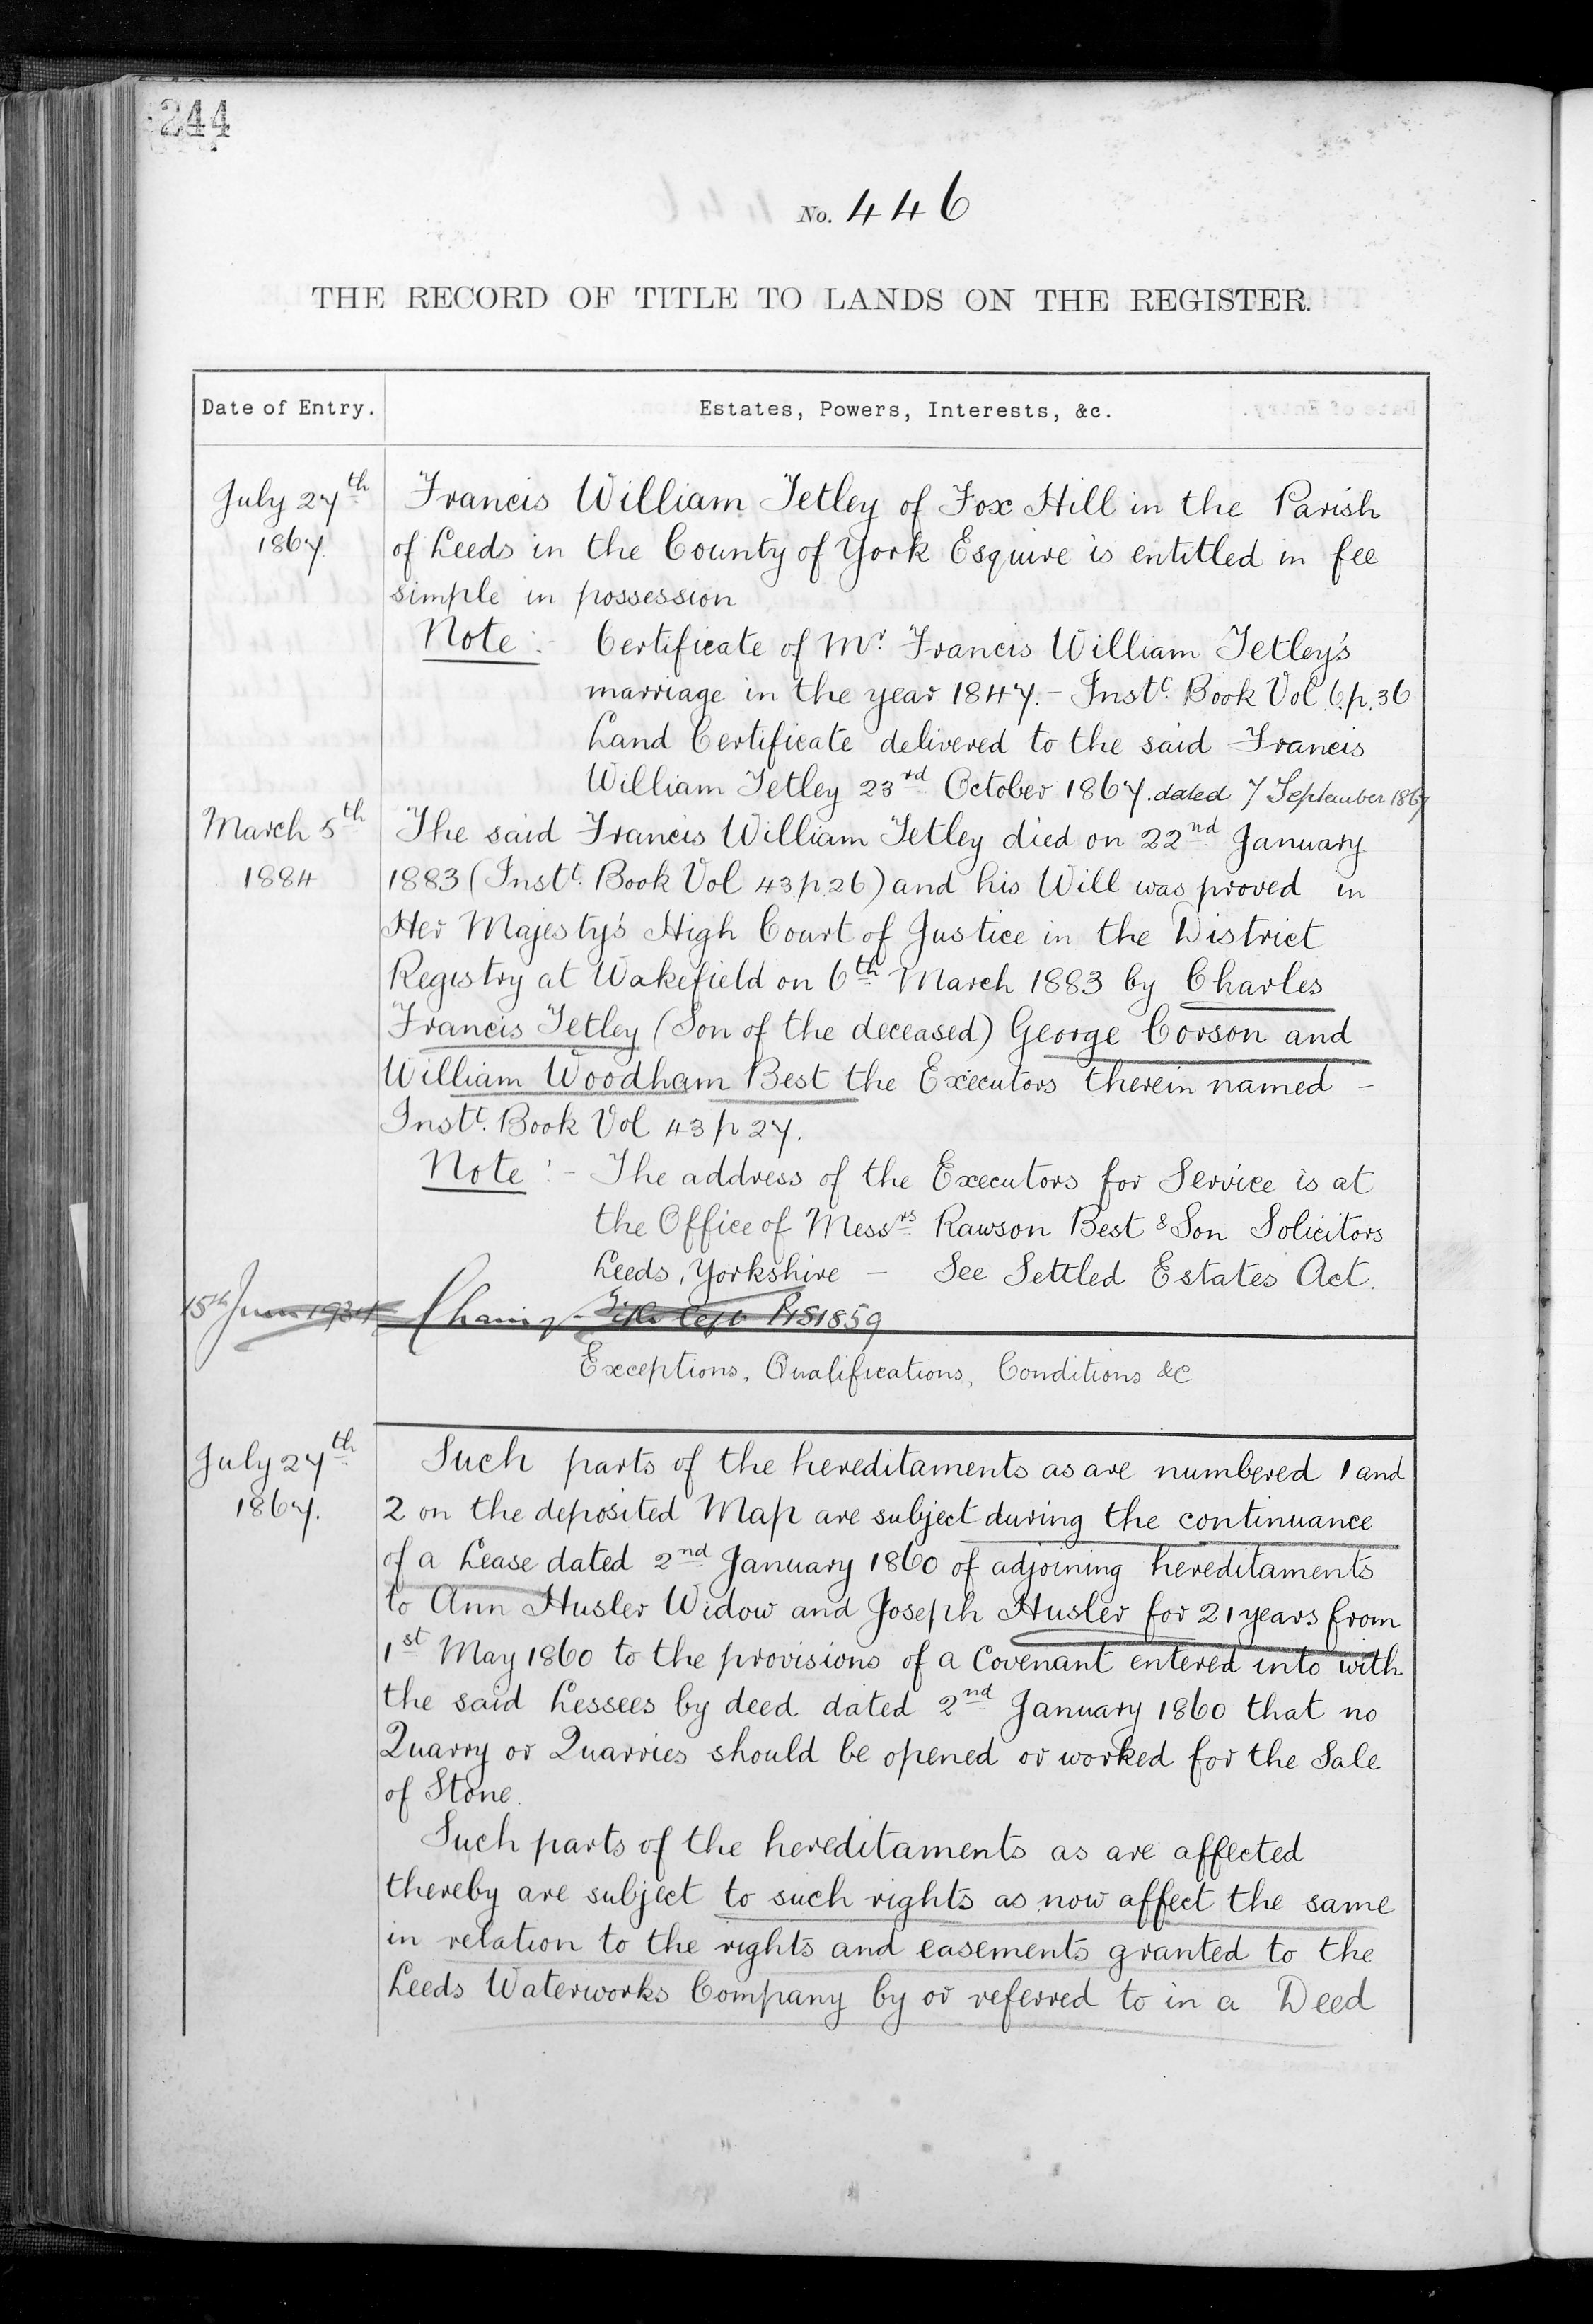 244
No. 446
THE RECORD OF TITLE TO LANDS ON THE REGISTER.
Date of Entry. Estates, Powers, Interests, &c.
July 27th Francis William Tetley of Fox Hill in the Parish
1867. of Leeds in the County of York Esquire is entitled in fee
simple in possession
Note:- Certificate of Mr. Francis William Tetley's
marriage in the year 1847.- Instt. Book Vol. 6. p. 36
Land Certificate delivered to the said Francis
William Tetley 23rd October 1867. dated 7 September 1867
March 5th The said Francis William Tetley died on 22nd January
1884 1883 (Instt. Book Vol 43. p. 26) and his Will was proved in
Her Majesty's High Court of Justice in the District
Registry at Wakefield on 6th March 1883 by Charles
Francis Tetley (Son of the deceased) George Corson and
William Woodham Best the Executors therein named -
Instt. Book Vol 43 p 27.
Note:- The address of the Executors for Service is at
the Office of Messrs Rawson Best & Son Solicitors
Leeds, Yorkshire - See Settled Estates Act.
15th June 1934 1859
Exceptions, Qualifications, Conditions &c
July 27th Such parts of the hereditaments as are numbered 1 and
1867. 2 on the deposited Map are subject during the continuance
of a Lease dated 2nd January 1860 of adjoining hereditaments
to Ann Husler Widow and Joseph Husler for 21 years from
1st May 1860 to the provisions of a Covenant entered into with
the said Lessees by deed dated 2nd January 1860 that no
Quarry or Quarries should be opened or worked for the Sale
of Stone.
Such parts of the hereditaments as are affected
thereby are subject to such rights as now affect the same
in relation to the rights and easements granted to the
Leeds Waterworks Company by or referred to in a Deed